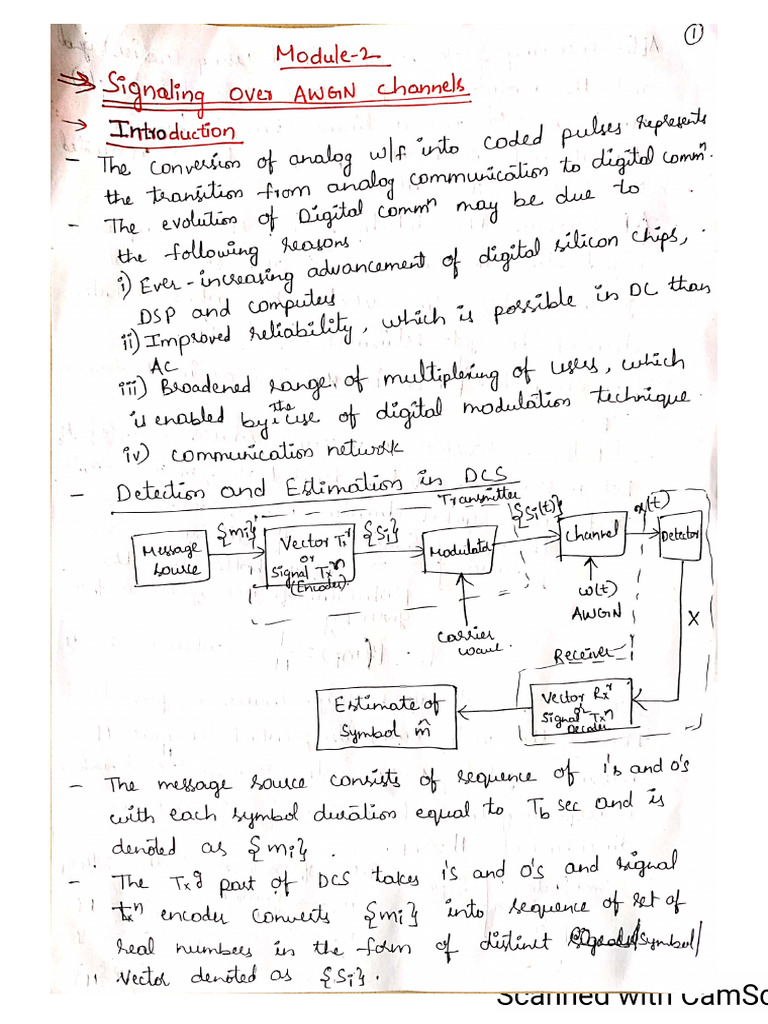 1
Module-2
Signaling over AWGN channels
Introduction
- The conversion of analog w/f into coded pulses represents
the transition from analog communication to digital commⁿ.
- The evolution of Digital commⁿ may be due to
the following reasons
i) Ever-increasing advancement of digital silicon chips,
DSP and computers
ii) Improved reliability, which is possible in DC than
AC
iii) Broadened range of multiplexing of users, which
is enabled by the use of digital modulation technique.
iv) communication network
- Detection and Estimation in DCS
Transmitter
{mi} {Si} {Si(t)} x(t)
Message source
Vector Txʳ or Signal Txⁿ (Encoder)
Modulator
Channel
Detector
carrier wave.
w(t)
AWGN
X
Receiver
Estimate of Symbol m̂
Vector Rxʳ or Signal Txⁿ Decoder
- The message source consists of sequence of 1's and 0's
with each symbol duration equal to Tb sec and is
denoted as {mi}.
- The Txg part of DCS takes 1's and 0's and signal
txⁿ encoder converts {mi} into sequence of set of
real numbers in the form of distinct /symbol/
Vector denoted as {Si}.
Scanned with CamSc